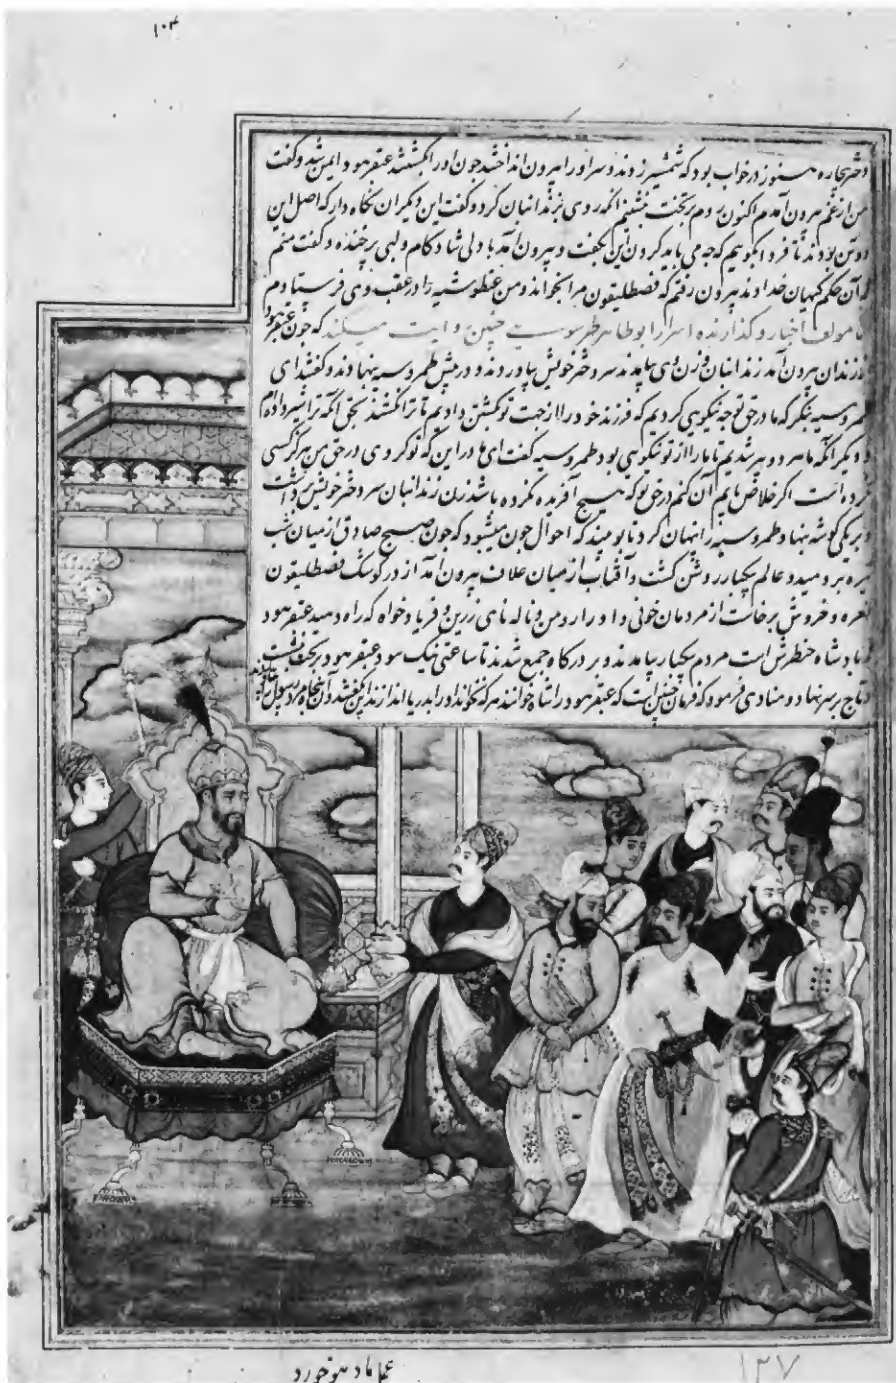 ۱۰۴
دختر بیچاره هنوز در خواب بود که شمشیر زدند و سر او را بیرون انداختند چون او را کشتند عنقرهود ایمن شد و گفت
من از غم بیرون آمدم اکنون روم بر تخت بنشینم آنگه روی بزندانبان کرد و گفت این دیگران نگاه دار که اصل این
دو تن بودند تا فردا بگویم که چه می باید کردن این بگفت و بیرون آمد با دلی شاد کام و لبی پر خنده و گفت منم
که آن حکم کیهان خداوند بیرون رفتم که قنصطلیقون مرا بخواند و من عنطوشیه را در عقب وی فرستادم
اما مولف اخبار و گذارنده اسرار ابو طاهر طرسوسی چنین روایت میکند که چون عنقرهود
از زندان بیرون آمد زندانبان و زن وی بیامدند سر دختر خویش بیاوردند و در پیش طمروسیه بنهادند و گفتند ای
طمروسیه بنگر که ما در حق تو چه نیکویی کردیم که فرزند خود را از جهت تو بکشتن دادیم تا ترا نکشند
و دیگر آنکه ما هر دو پیر شدیم تا ما را از تو نیکویی بود طمروسیه گفت ای مادر این که تو کردی در حق من هرگز کسی
نکرده است اگر خلاص یابم آن کنم در حق تو که هیچ آفریده نکرده باشد زن زندانبان سر دختر خویش برداشت
و بر یکی گوشه بنهاد و طمروسیه را پنهان کرد تا بوبیند که احوال چون میشود که چون صبح صادق از میان شب
تیره بر دمید و عالم یکبار روشن گشت و آفتاب از میان غلاف بیرون آمد از در کوشک قنصطلیقون
نعره و خروش برخاست از مردمان و ناله نای زرین و فریاد خواه که راه دهید عنقرهود
پادشاه منطرش است مردم یکبار بیامدند و بر درگاه جمع شدند تا ساعتی نیک بود عنقرهود بر تخت نشست
و تاج بر سر نهاد و منادی فرمود که فرمان چنین است که عنقرهود را شاه خوانند هر که نخواند او را بدریا اندازند این گفتند
عمل مادهو خورد
۱۳۷